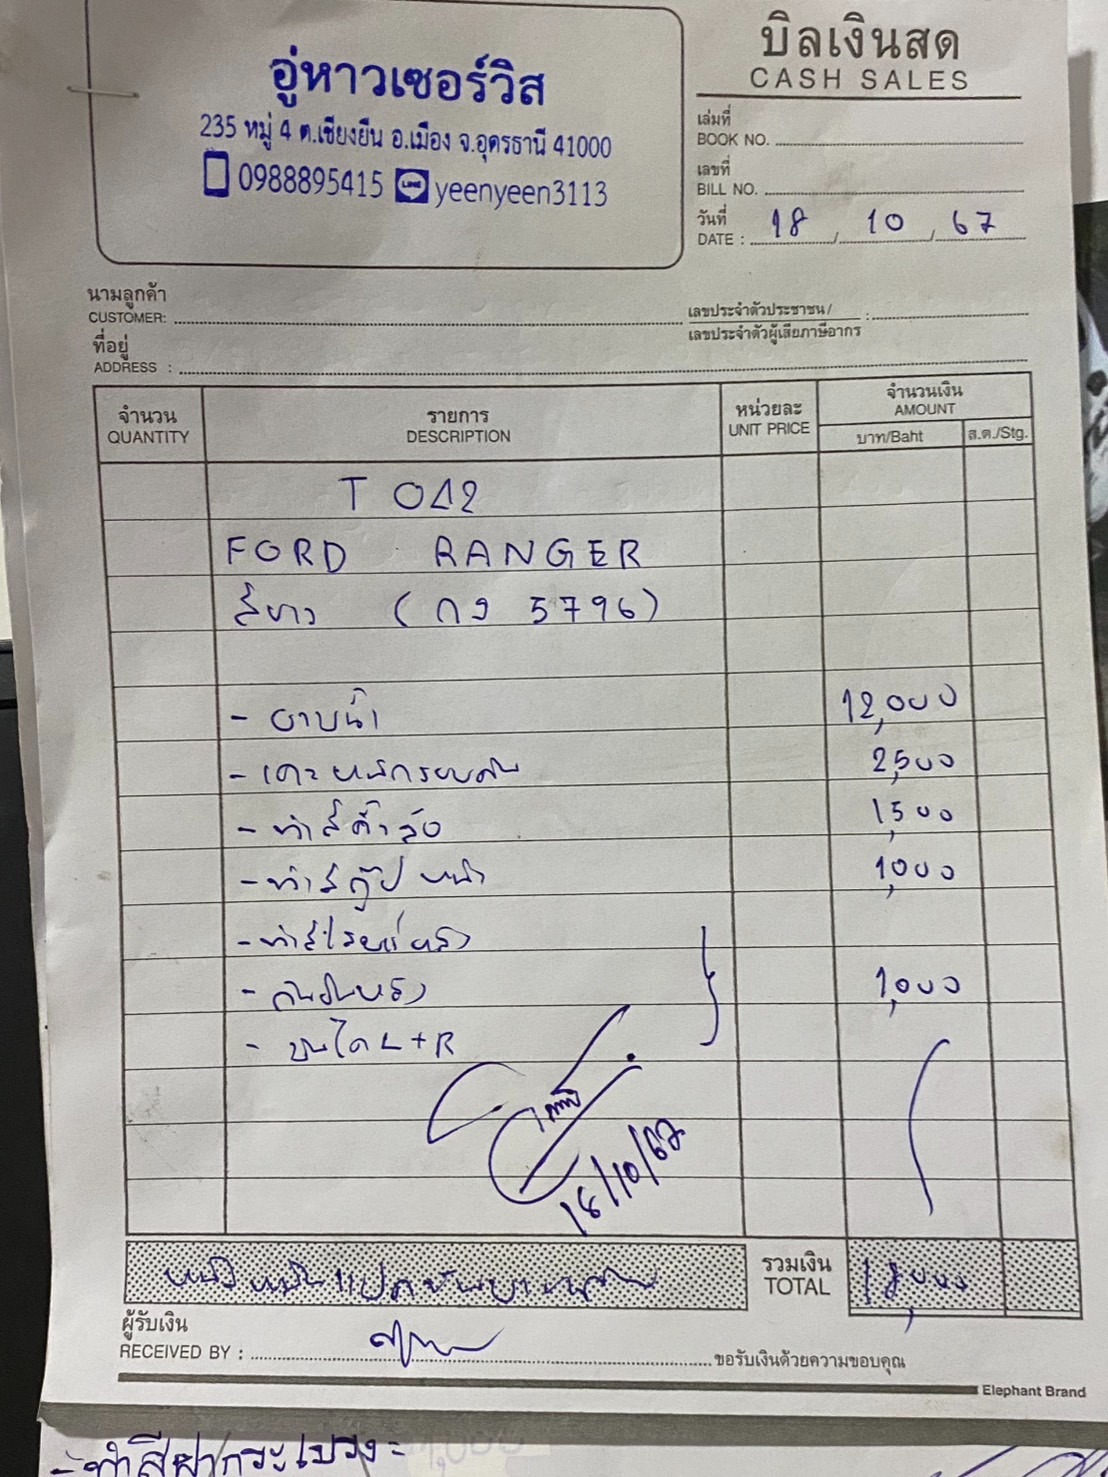 อู่หาวเซอร์วิส
235 หมู่ 4 ต.เชียงยืน อ.เมือง จ.อุดรธานี 41000
0988895415 LINE yeenyeen3113
บิลเงินสด
CASH SALES
เล่มที่
BOOK NO.
เลขที่
BILL NO.
วันที่
DATE : 18 / 10 / 67
นามลูกค้า
CUSTOMER:
เลขประจำตัวประชาชน/
เลขประจำตัวผู้เสียภาษีอากร :
ที่อยู่
ADDRESS :
จำนวน QUANTITY
รายการ DESCRIPTION
หน่วยละ UNIT PRICE
จำนวนเงิน AMOUNT
บาท/Baht ส.ต./Stg.
T 042
FORD RANGER
สีขาว (กง 5796)
- ยาบน้ำ 12,000
- เคาะหลังรอบคัน 2,500
- ทำสี 1,500
- ทำสี หน้า 1,000
- ทำสี หลัง
- กันชนหลัง 1,000
- บันได L+R
18/10/67
หนึ่งหมื่นแปดพันบาทถ้วน
รวมเงิน
TOTAL 18,000
ผู้รับเงิน
RECEIVED BY : ขอรับเงินด้วยความขอบคุณ
Elephant Brand
- ทำสีฝากระโปรง = 1,000